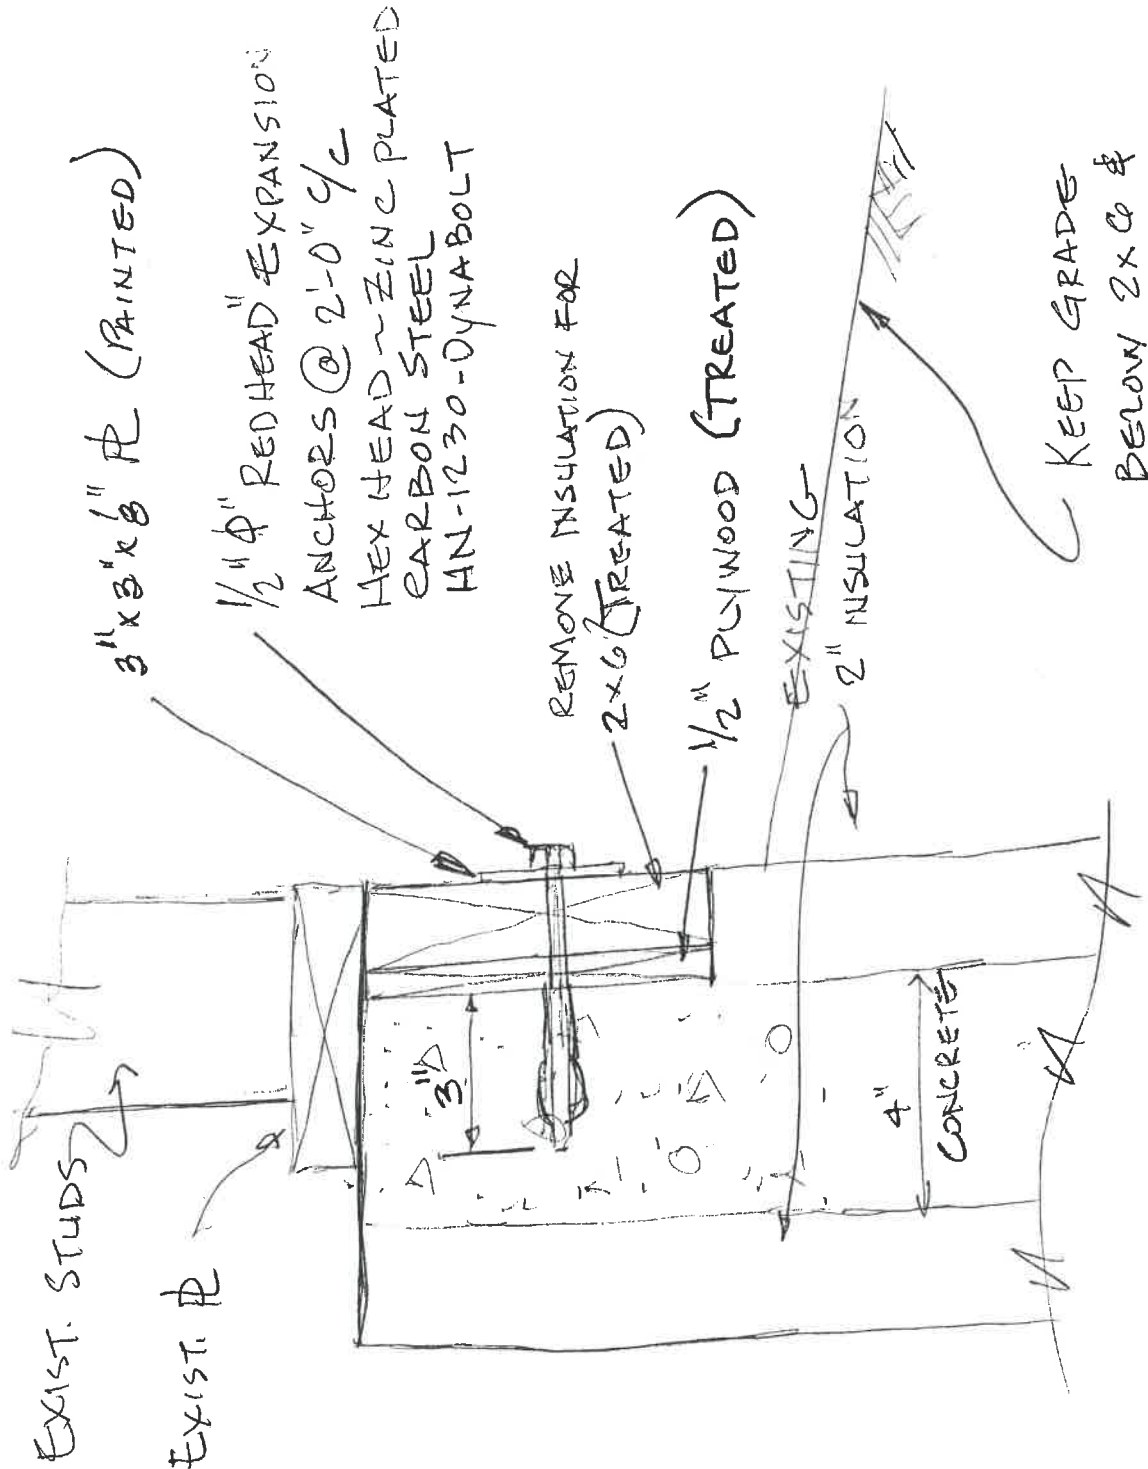 EXIST. STUDS
EXIST. PL
3"x3"x1/8" PL (PAINTED)
1/2"ϕ "REDHEAD" EXPANSION
ANCHORS @ 2'-0" c/c
HEX HEAD ~ ZINC PLATED
CARBON STEEL
HN-1230-DYNABOLT
REMOVE INSULATION FOR
2x6 (TREATED)
1/2" PLYWOOD (TREATED)
EXISTING
2" INSULATION
3"
4"
CONCRETE
KEEP GRADE
BELOW 2x6 &